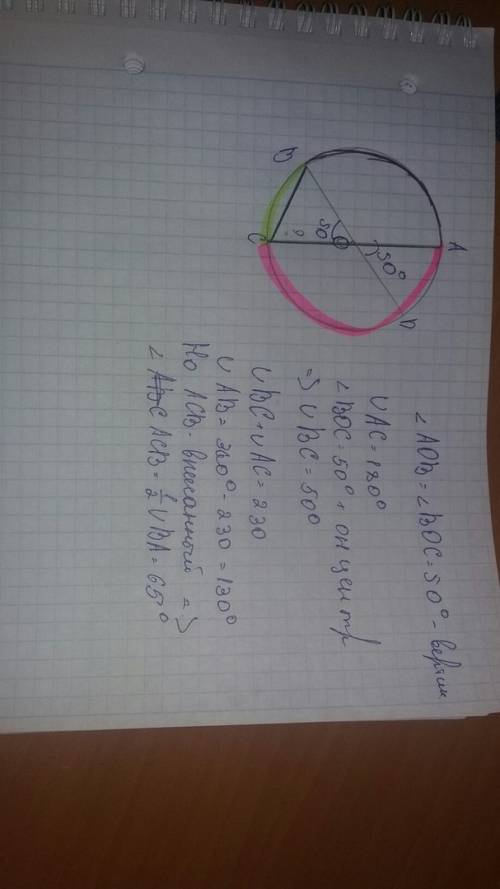 B
C
O
A
D
?
50
50°
∠AOB = ∠BOC = 50° - вертик
∪AC = 180°
∠BOC = 50° + он центр
=> ∪BC = 50°
∪BC + ∪AC = 230
∪AB = 360° - 230 = 130°
Но ACB - вписанный =>
∠ACB = 1/2 ∪BA = 65°